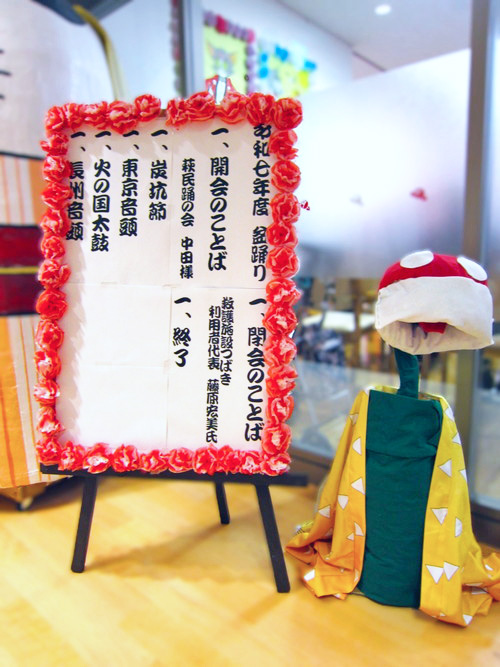 令和七年度 盆踊り
一、開会のことば
萩民踊の会 中田様
一、炭坑節
一、東京音頭
一、火の国太鼓
一、長州音頭
一、閉会のことば
救護施設つばき
利用者代表 藤原宏美氏
一、終了